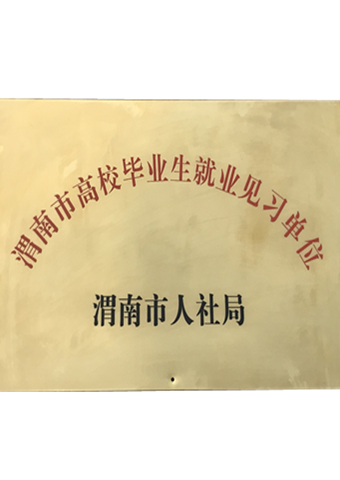 渭南市高校毕业生就业见习单位
渭南市人社局